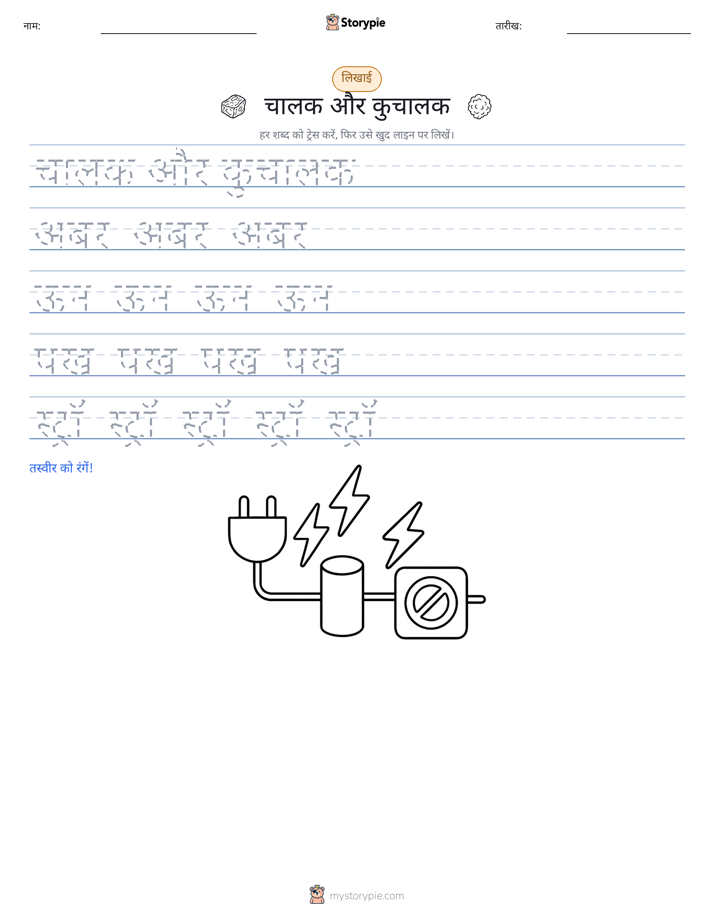 नाम:
Storypie
तारीख:
लिखाई
चालक और कुचालक
हर शब्द को ट्रेस करें, फिर उसे खुद लाइन पर लिखें।
चालक और कुचालक
अबर अबर अबर
ऊन ऊन ऊन ऊन
पख पख पख पख
स्ट्रॉ स्ट्रॉ स्ट्रॉ स्ट्रॉ स्ट्रॉ
तस्वीर को रंगें!
mystorypie.com